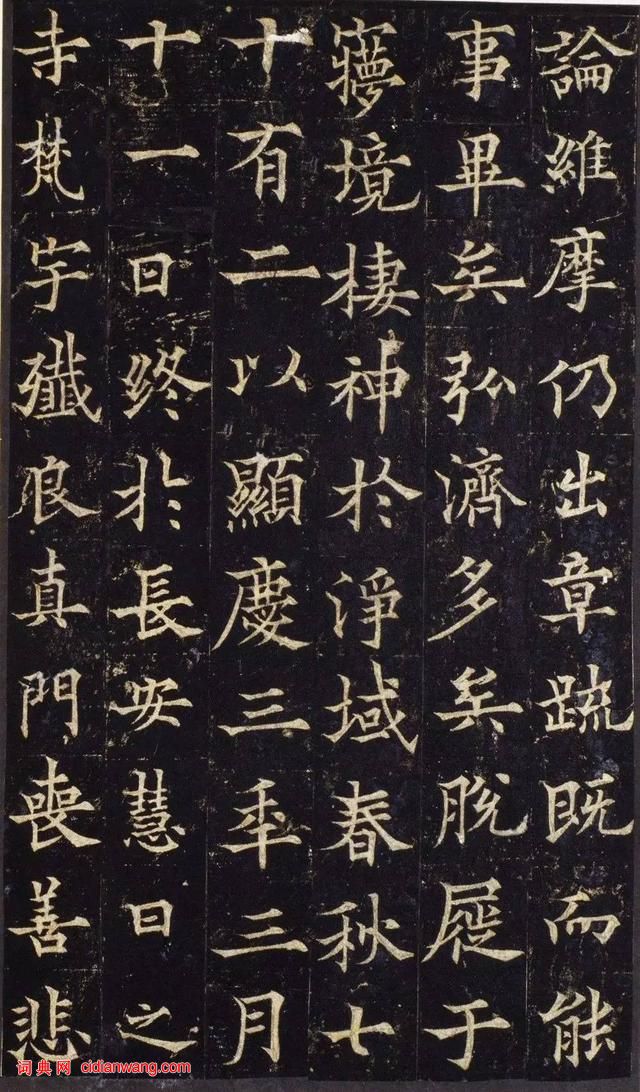 論維摩仍出章疏既而能
事畢矣弘濟多矣脫屣于
㝱境棲神於淨域春秋七
十有二以顯慶三年三月
十一日終於長安慧日之
寺梵宇殲良真門喪善悲
词典网 cidianwang.com